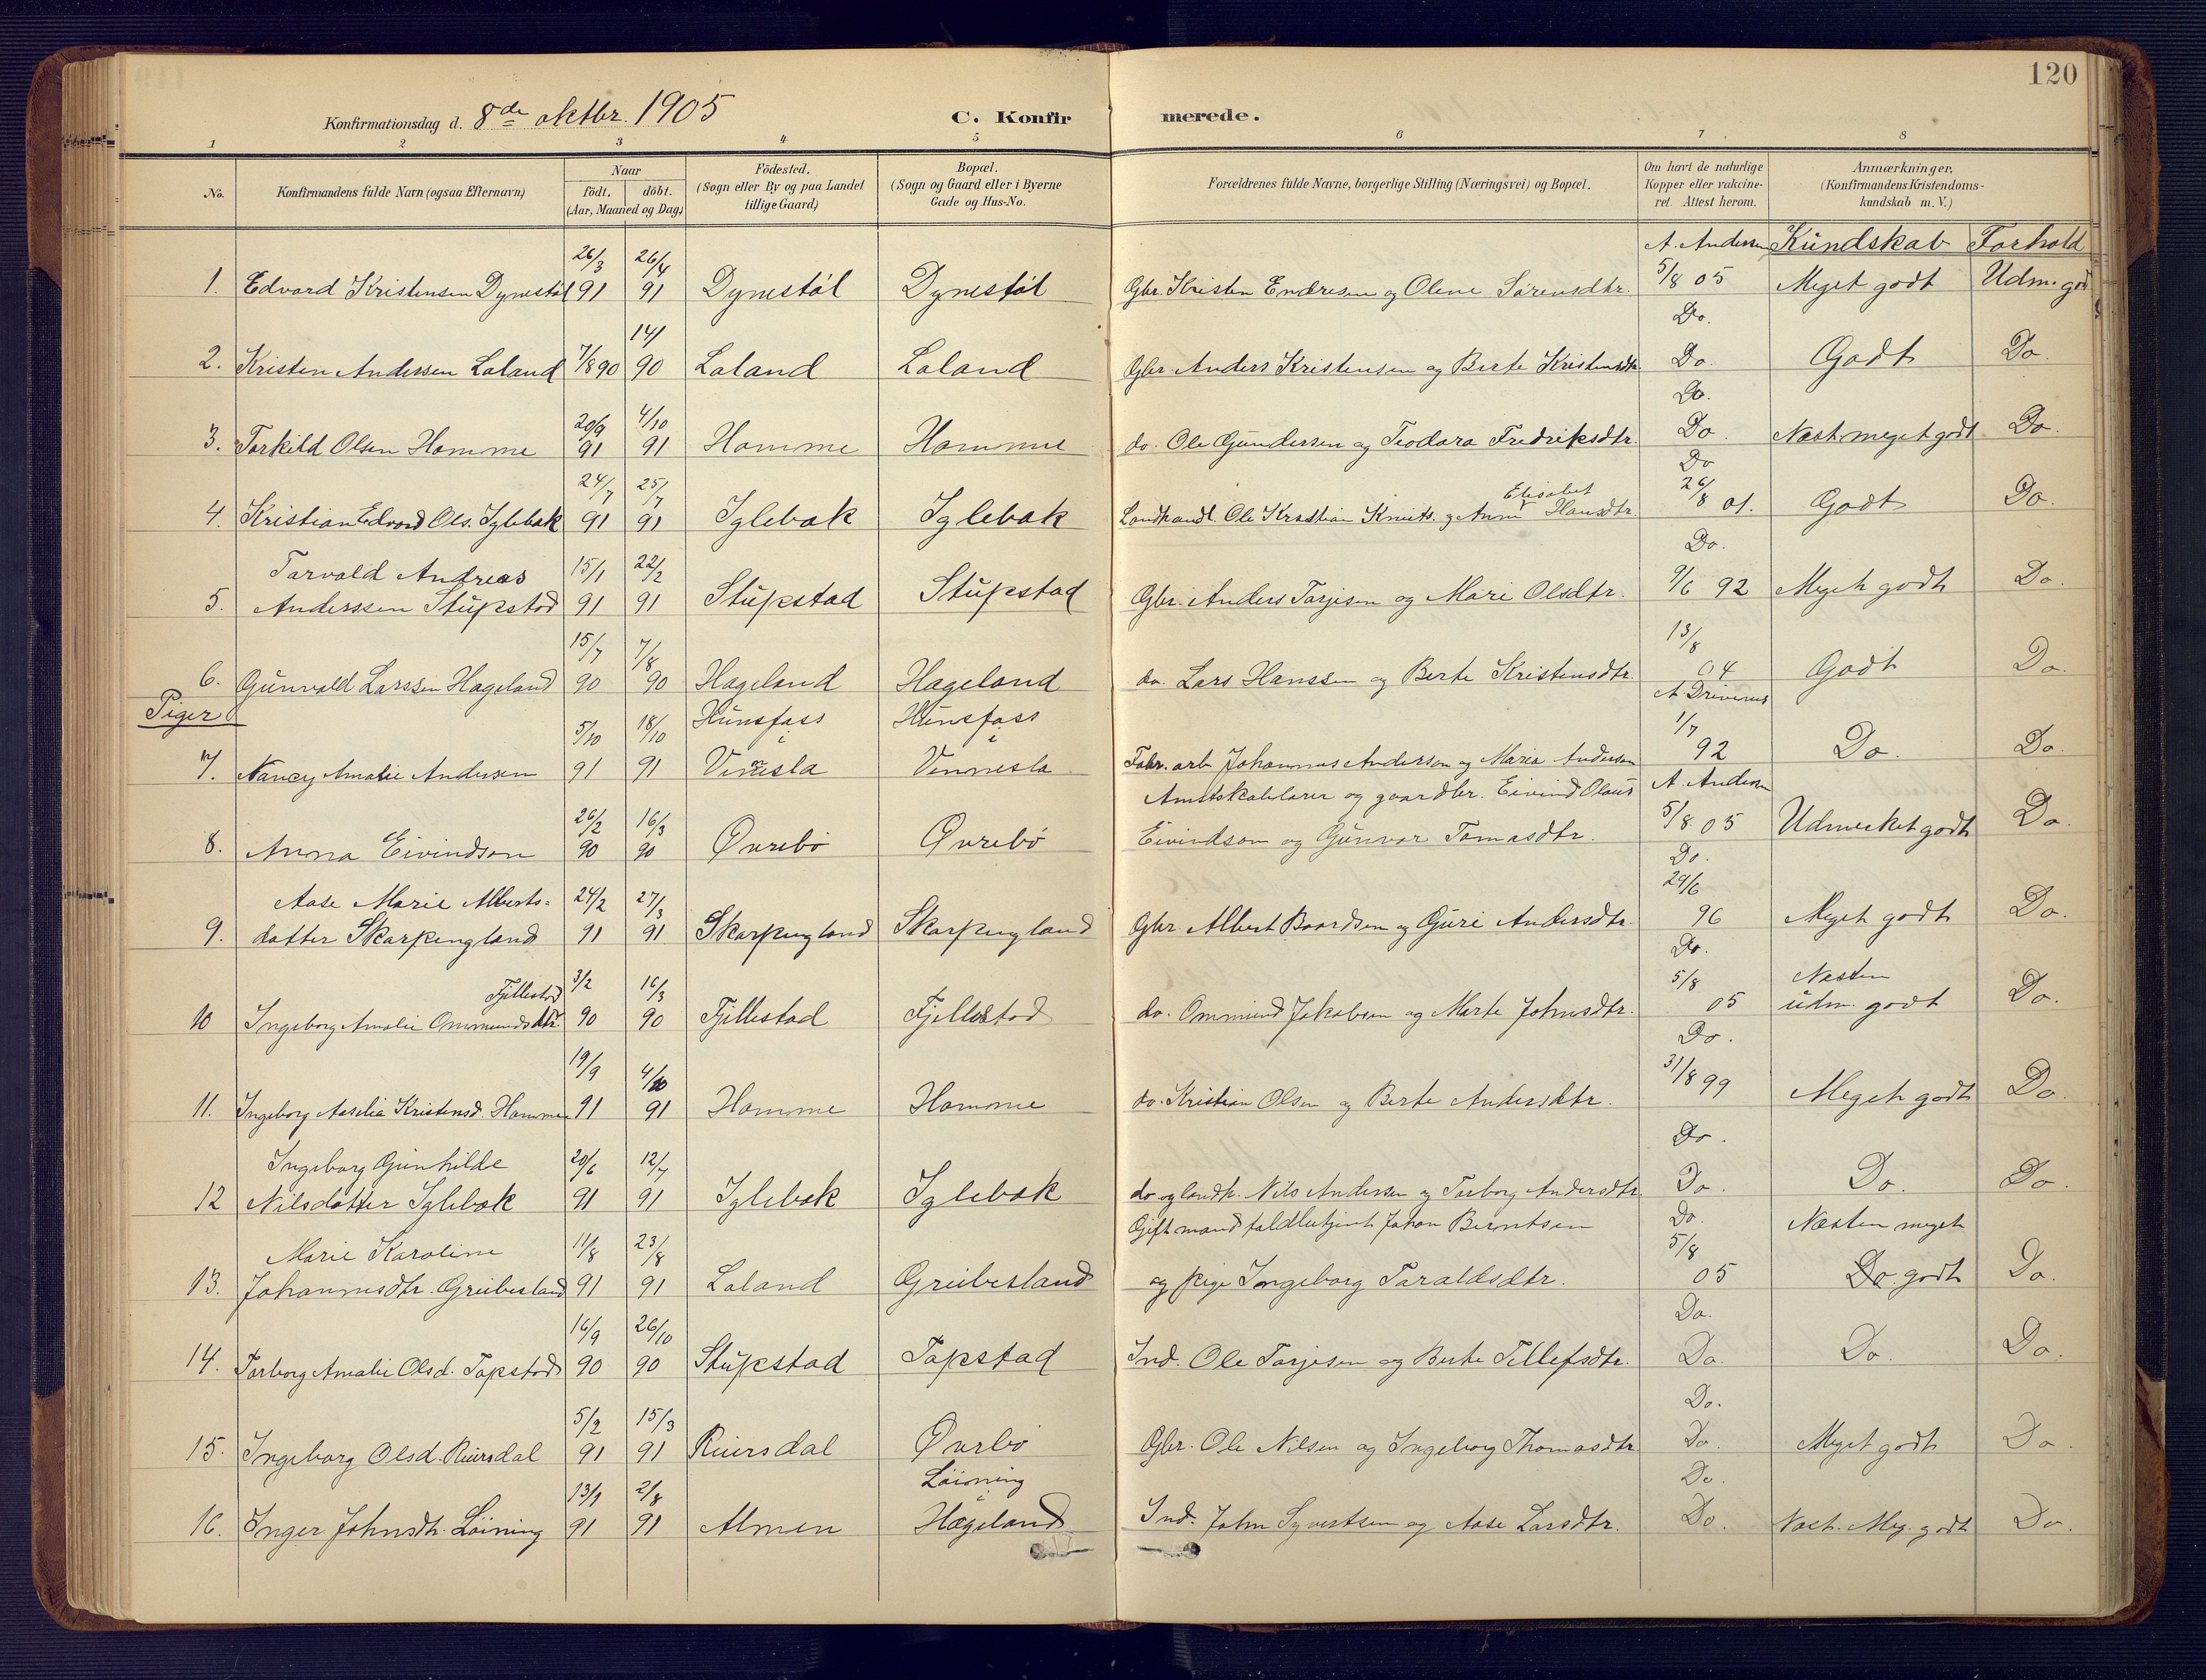 120
Konfirmationsdag d. 8de oktbr. 1905 C. Konfirmerede.
1 2 3 4 5 6 7 8
No. Konfirmandens fulde Navn (ogsaa Efternavn) Naar födt. döbt. (Aar, Maaned og Dag) Födested. (Sogn eller By og paa Landet tillige Gaard) Bopæl. (Sogn og Gaard eller i Byerne Gade og Hus-No. Forældrenes fulde Navne, borgerlige Stilling (Næringsvei) og Bopæl. Om havt de naturlige Kopper eller vakcineret. Attest herom. Anmærkninger. (Konfirmandens Kristendomskundskab m. V.)
A. Andersen Kundskab Forhold
1. Edvard Kristensen Dynestøl 26/3 91 26/4 91 Dynestøl Dynestøl Gbr. Kristen Endresen og Olene Sørensdtr. 5/8 05 Meget godt Udm. godt
Do.
2. Kristen Anderssen Loland 7/8 90 14/ 90 Loland Loland Gbr. Anders Kristensen og Berte Kristensdtr. Do. Godt Do.
Do.
3. Torkild Olsen Homme 20/9 91 4/10 91 Homme Homme do. Ole Gundersen og Teodora Fredriksdtr. Do. Næst. meget godt Do.
Do
4. Kristian Edvard Ols. Iglebæk 24/7 91 25/7 91 Iglebæk Iglebæk Landhandl. Ole Kristian Knuts. og Anne Elisabet Hansdtr. 26/8 01. Godt Do.
Do.
5. Torvald Andreas Anderssen Stupstad 15/1 91 22/2 91 Stupstad Stupstad Gbr. Anders Torjesen og Mari Olsdtr. 9/6 92 Meget godt Do.
6. Gunvald Larssen Hageland 15/7 90 7/8 90 Hageland Hageland do. Lars Hanssen og Berte Kristensdtr. 13/8 04 Godt Do.
Piger
A. Drivenes
7. Nancy Amalie Andersen 5/10 91 18/10 91 Hunsfoss i Vennesla Hunsfoss i Vennesla Fabr. arb. Johannes Andersen og Maria Andersen 1/7 92 Do. Do.
A. Andersen
8. Anna Eivindson 26/2 90 16/3 90 Øvrebø Øvrebø Amtskabelører og gaardbr. Eivind Olaus Eivindson og Gunvor Tomasdtr. 5/8 05 Udmerket godt Do.
Do.
9. Aase Marie Albertsdatter Skarpengland 24/2 91 27/3 91 Skarpengland Skarpengland Gbr. Albert Baardsen og Guri Andersdtr. 29/6 96 Meget godt Do.
Do.
10 Ingeborg Amalie Ommundsdtr. Fjellestad 3/2 90 16/3 90 Fjellestad Fjellestad do. Ommund Jakobsen og Marte Johnsdtr. 5/8 05 Næsten udm. godt Do.
Do.
11. Ingeborg Aaselia Kristensd. Homme 19/9 91 4/10 91 Homme Homme do. Kristian Olsen og Berte Andersdtr. 31/8 99 Meget godt Do.
Do.
12 Ingeborg Gunhilde Nilsdatter Iglebæk 20/6 91 12/7 91 Iglebæk Iglebæk do og landh. Nils Andersen og Torborg Andersdtr. Do. Do. Do.
Do.
13. Marie Karoline Johannesdtr. Greibesland 11/8 91 23/8 91 Loland Greibesland Gift mand Johan Berntsen og pige Ingeborg Taraldsdtr. 5/8 05 Næsten meget godt Do.
Do.
14. Torborg Amalie Olsd. Topstad 16/9 90 26/10 90 Stupstad Topstad Ind. Ole Torjesen og Berte Tellefsdtr. Do. Do. Do.
Do.
15. Ingeborg Olsd. Reiersdal 5/2 91 15/3 91 Reiersdal Øvrbø Gbr. Ole Nilsen og Ingeborg Thomasdtr. Do. Meget godt Do.
Do.
16. Inger Johnsdtr. Løining 13/9 91 2/8 91 Almen Løining i Hægeland Ind. John Syvertsen og Aase Larsdtr. Do. Næst. Meg. godt Do.